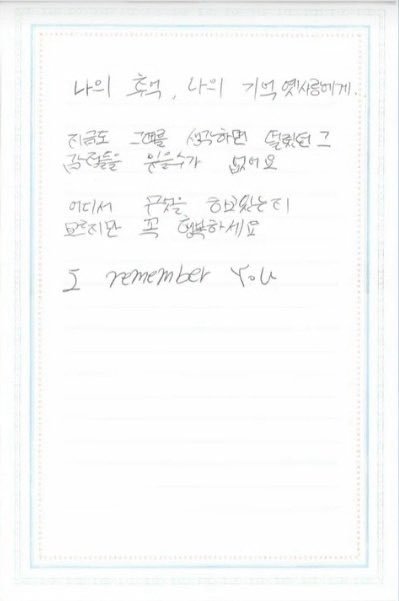 나의 추억, 나의 기억 옛사랑에게..
지금도 그대를 생각하면 떨렸던 그
감정들을 잊을수가 없어요
어디서 무엇을 하고있는지
모르지만 꼭 행복하세요
I remember You